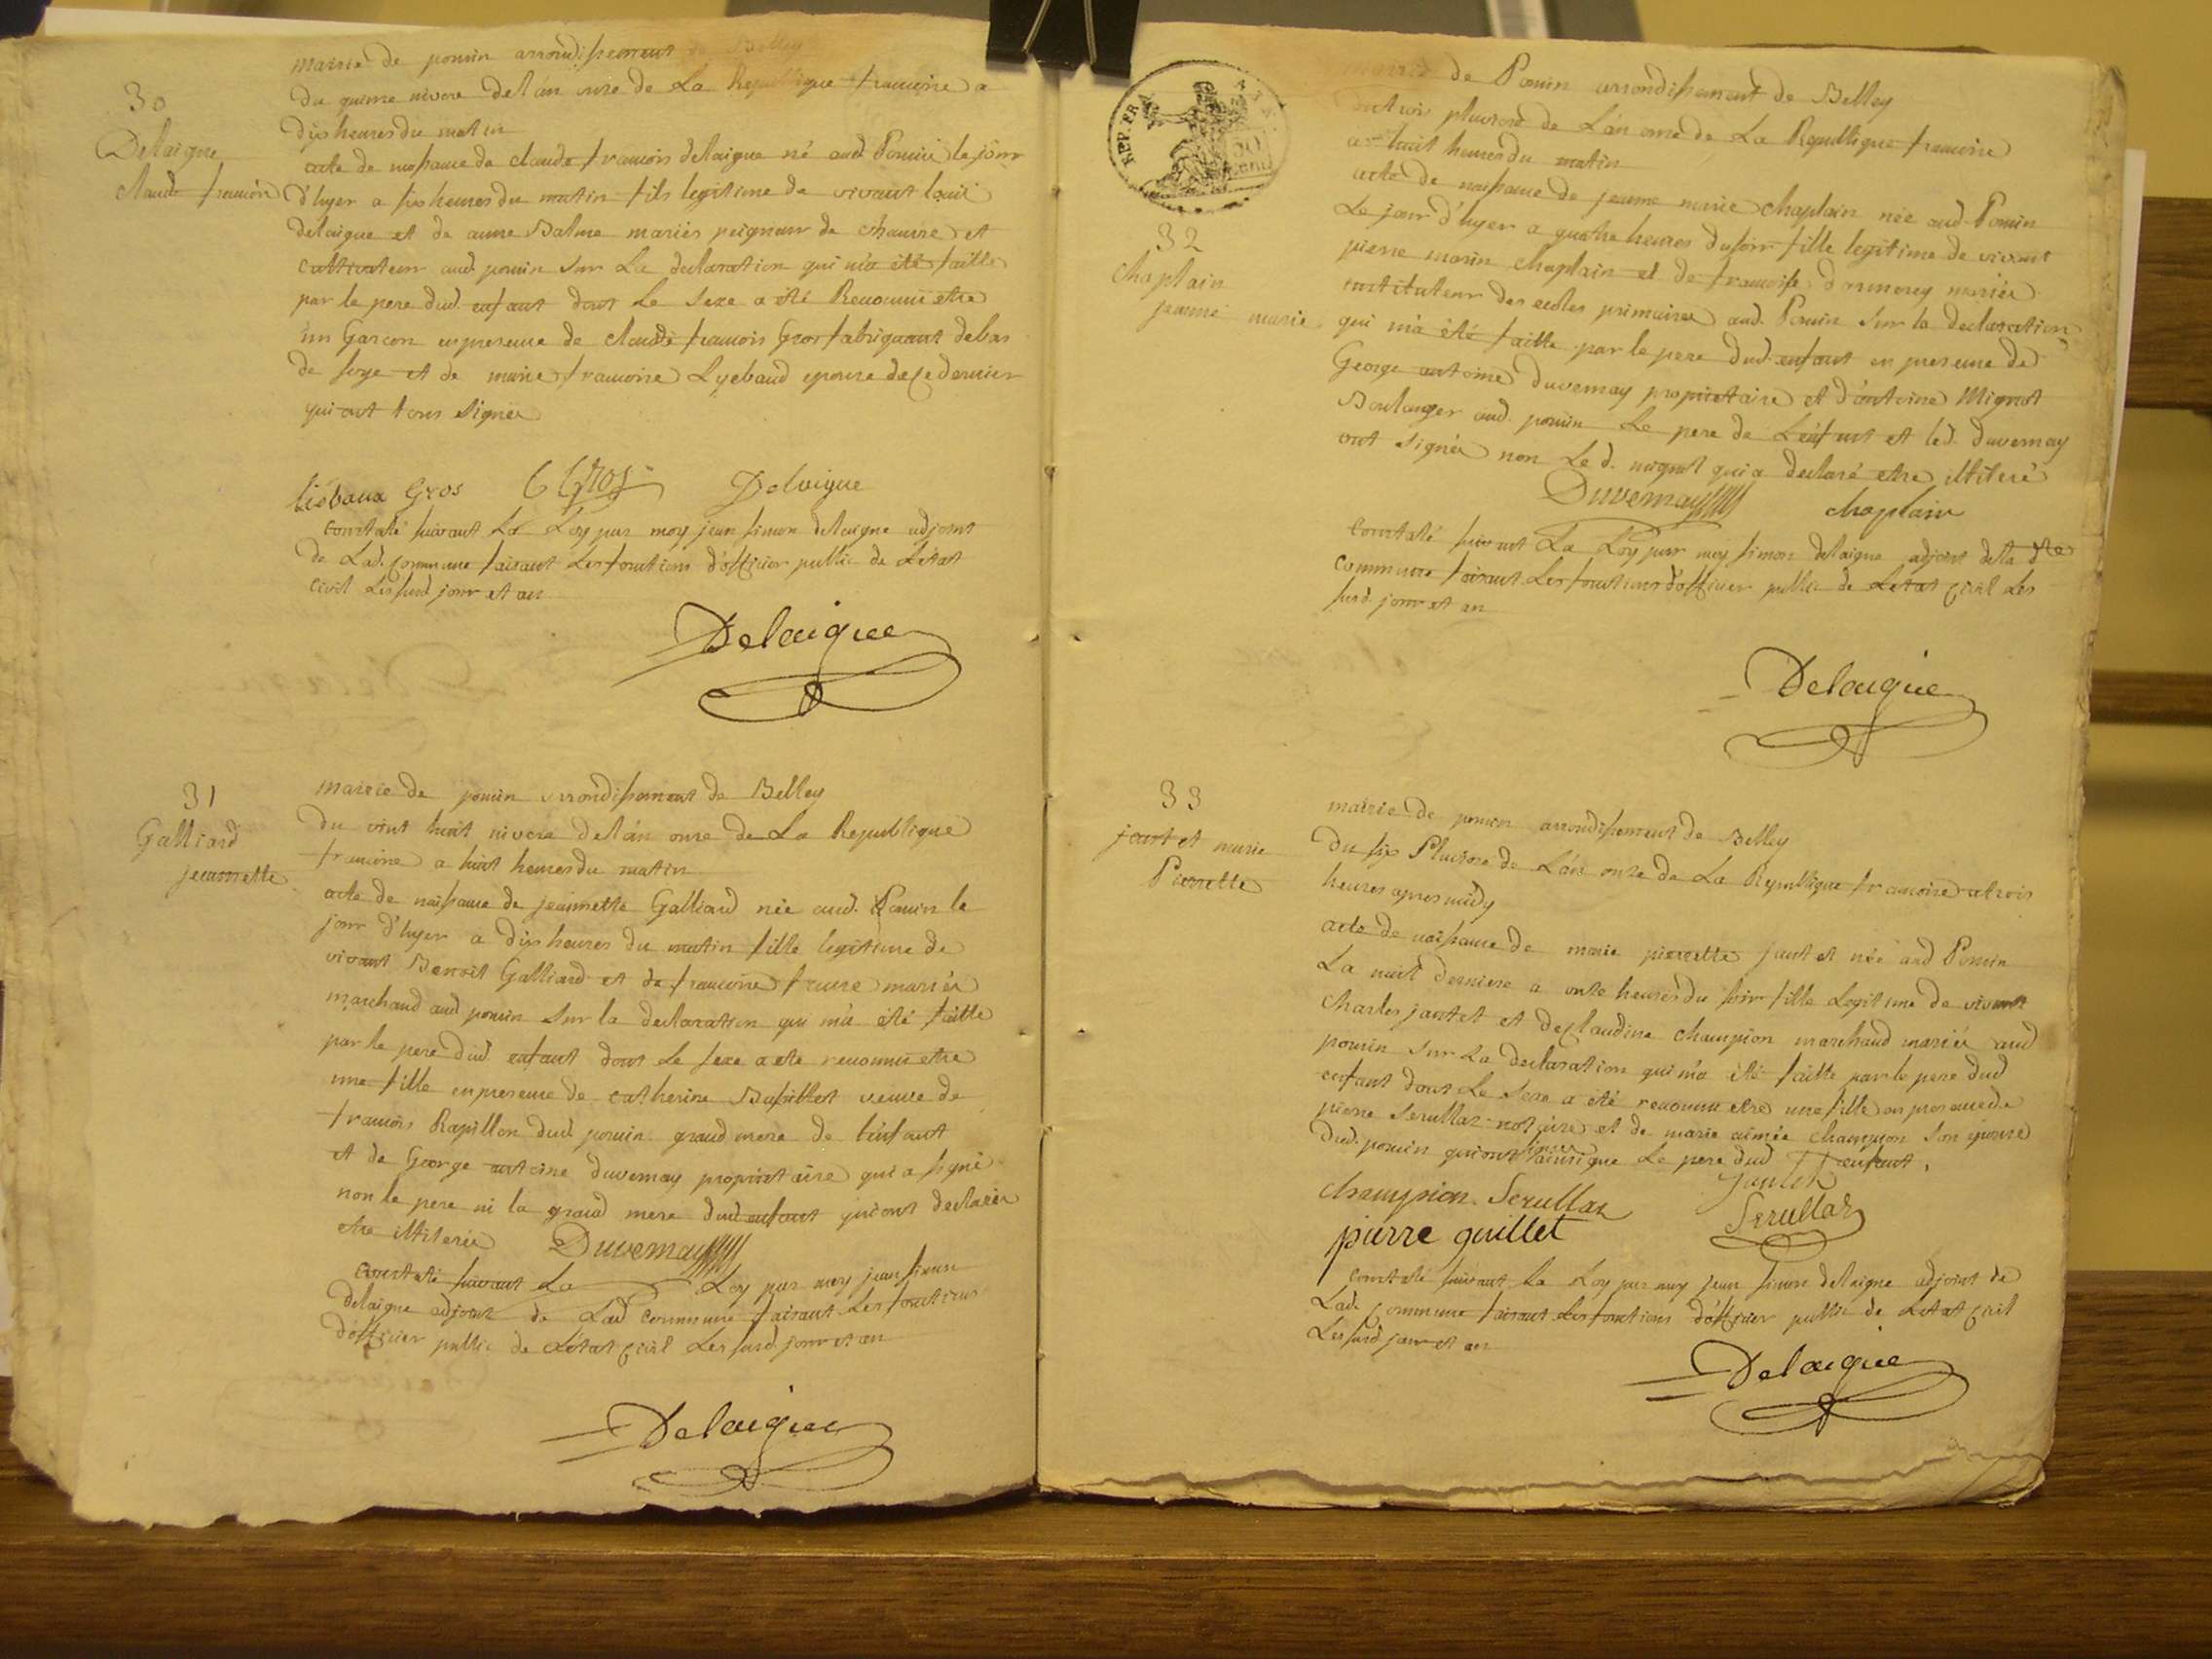 mairie de poncin arrondissement de Belley
30
du quinze nivose de l'an onze de La Republique francoise a
dix heures du matin
Delaigue
claude francois
acte de naissance de claude francois delaigue né aud. Poncin le jour
d'hyer a six heures du matin fils legitime de vivant louis
delaigue et de anne Balme mariés peigneur de chanvre et
cultivateur aud. poncin sur La declaration qui m'a été faitte
par le pere dud. enfant dont Le sexe a été Reconnu etre
un Garcon en presence de claude francois Gros fabriquant de bas
de soye et de marie francoise Lyebaud epouse de ce dernier
qui ont tous signés
liébaux Gros C f Gros Delaigue
constaté suivant La Loy par moy jean simon delaigue adjoint
de Lad. commune faisant Les fonctions d'officier public de L'état
civil Les susd. jour et an
Delaigue
31
Galliard
jeannette
mairie de poncin arrondissement de Belley
du vint huit nivose de l'an onze de La Republique
francoise a huit heures du matin
acte de naissance de jeannette Galliard née aud. Poncin le
jour d'hyer a dix heures du matin fille legitime de
vivant Benoit Galliard et de francoise mariés
marchand aud poncin sur la declaration qui m'a été faitte
par le pere dud. enfant dont Le sexe a ete reconnu etre
une fille en presence de catherine veuve de
francois Rapillon dud. poncin grand mere de l'enfant
et de George antoine duvernay proprietaire qui a signé
non le pere ni la grand mere dud enfant qui ont declarés
etre illiterés Duvernay
constaté suivant La Loy par moy jean simon
delaigue adjoint de Lad commune faisant Les fonctions
d'officier public de L'état civil Les susd. jour et an
Delaigue
REP. FRA
50
CENT
mairie de Poncin arrondissement de Belley
du trois pluviose de L'an onze de La Republique francoise
a huit heures du matin
32
chaplain
jeanne marie
acte de naissance de jeanne marie chaplain née aud. Poncin
Le jour d'hyer a quatre heures du soir fille legitime de vivant
pierre marin chaplain et de francoise dormorey mariés
instituteur des ecoles primaires aud. Poncin sur la declaration
qui m'a été faitte par le pere dud. enfant en presence de
George antoine duvernay proprietaire et d'antoine Mignot
Boulanger aud. poncin Le pere de L'enfant et led. duvernay
ont signés non Le d. mignot qui a declaré etre illiteré
Duvernay chaplain
constaté suivant La Loy par moy simon delaigue adjoint de la dte
commune faisant Les fonctions d'officier public de L'etat civil Les
susd. jour et an
Delaigue
33
jantet marie
Pierrette
mairie de poncin arrondissement de Belley
du six Pluviose de L'an onze de La Republique francoise a trois
heures apres midy
acte de naissance de marie pierrette jantet née aud Poncin
La nuit derniere a onze heures du soir fille Legitime de vivant
charles jantet et de claudine champion marchand mariés aud
poncin sur La declaration qui m'a été faitte par le pere dud
enfant dont Le sexe a été reconnu etre une fille en presence de
pierre serullaz notaire et de marie aimée champion son epouse
dud. poncin qui ont signés ainsi que Le pere dud enfant.
Jantet
champion. Serullaz Serullaz
pierre guillet
constaté suivant La Loy par moy jean simon delaigue adjoint de
Lad. commune faisant Les fonctions d'officier public de L'etat civil
Les susd jour et an
Delaigue